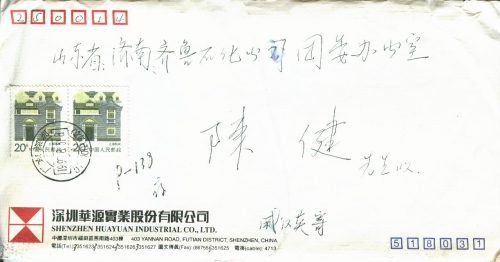 250014
山东省济南齐鲁石化公司团委办公室
陳健
先生收
20分 中国人民邮政
20分 中国人民邮政
深圳華源實業股份有限公司
SHENZHEN HUAYUAN INDUSTRIAL CO., LTD.
中國深圳市福田區燕南路403號 403 YANNAN ROAD, FUTIAN DISTRICT, SHENZHEN, CHINA.
戚汉英寄
518031